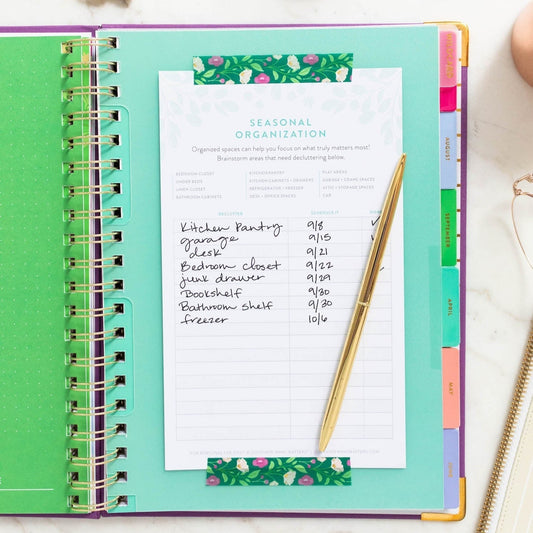 SEASONAL
ORGANIZATION
Organized spaces can help you focus on what truly matters most!
Brainstorm areas that need decluttering below.
BEDROOM CLOSET KITCHEN PANTRY PLAY AREAS
UNDER BEDS KITCHEN CABINETS + DRAWERS GARAGE + CRAWL SPACES
LINEN CLOSET REFRIGERATOR + FREEZER ATTIC + STORAGE SPACES
BATHROOM CABINET DESK + OFFICE SPACES CAR
DECLUTTER SCHEDULE IT
Kitchen Pantry 9/8 ✓
garage 9/15
desk 9/21
Bedroom closet 9/22 ✓
junk drawer 9/29
Bookshelf 9/30
Bathroom shelf 9/30
freezer 10/6
AUGUST
SEPTEMBER
APRIL
MAY
JUNE